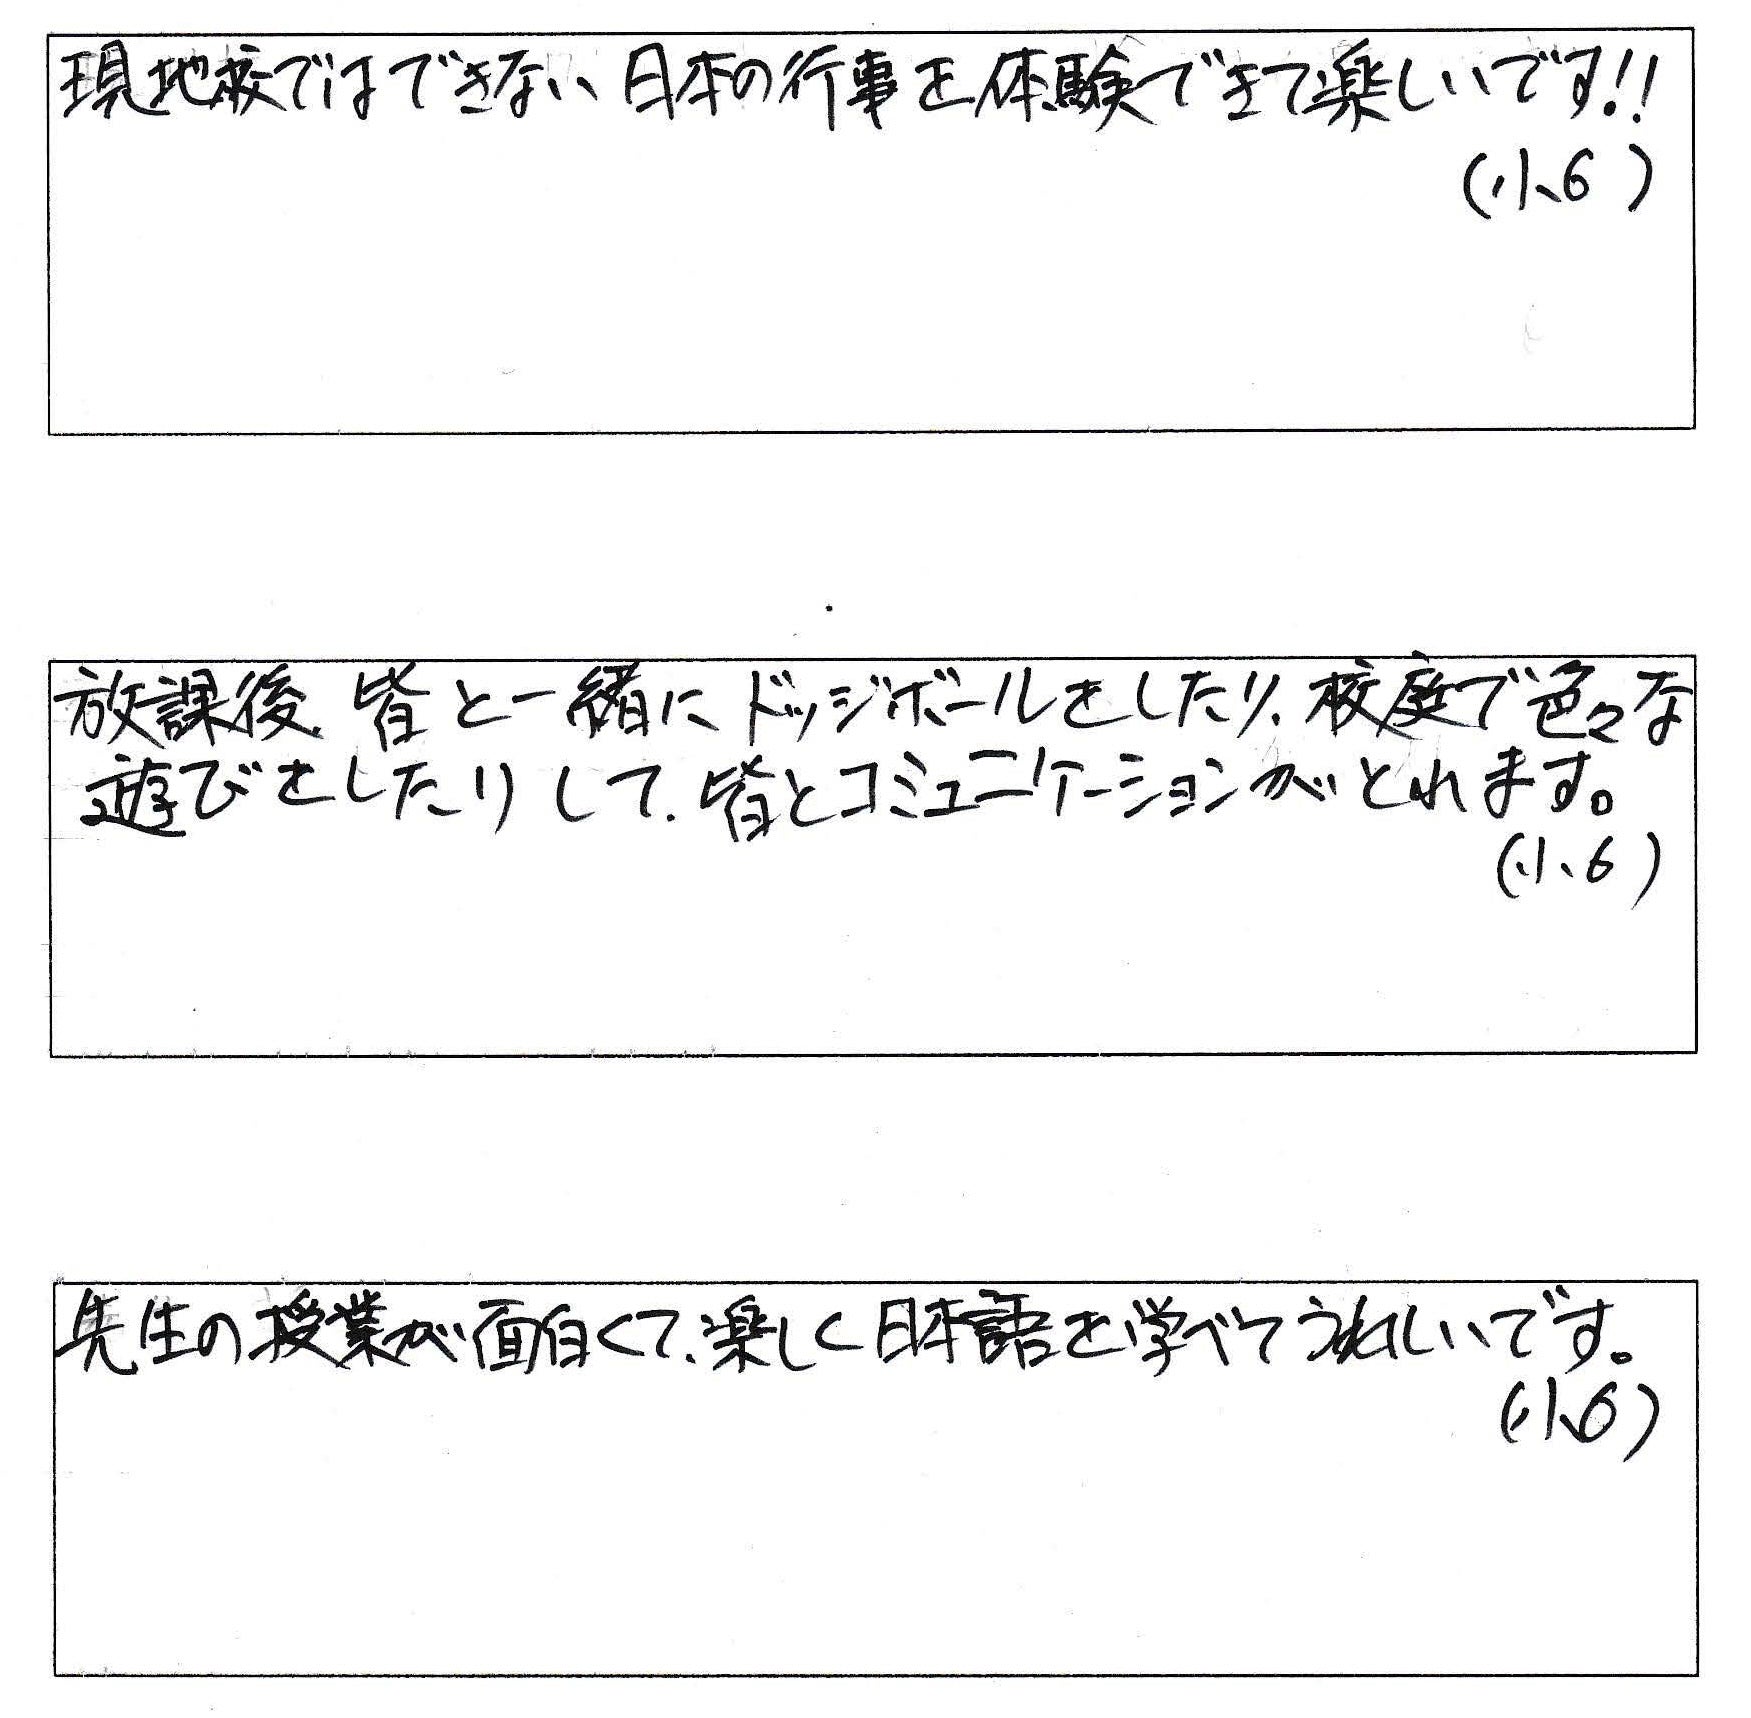 現地校ではできない日本の行事を体験できて楽しいです!!
(小6)
放課後、皆と一緒にドッジボールをしたり、校庭で色々な
遊びをしたりして、皆とコミュニケーションがとれます。
(小6)
先生の授業が面白くて、楽しく日本語を学べてうれしいです。
(小6)